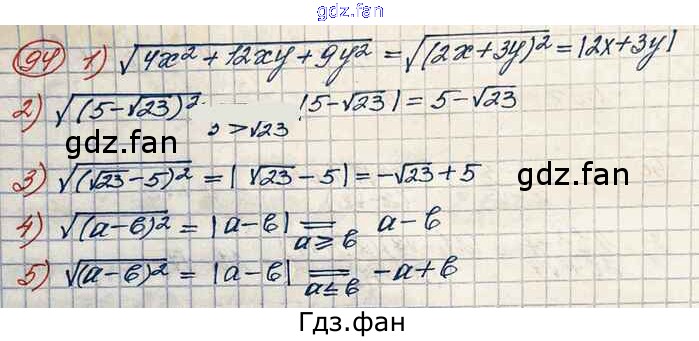 gdz.fan
94 1) √(4x² + 12xy + 9y²) = √((2x+3y)²) = |2x+3y|
2) √((5-√23)²) |5-√23| = 5-√23
> √23
gdz.fan
3) √((√23-5)²) = |√23-5| = -√23+5
gdz.fan
4) √((a-b)²) = |a-b| = a-b
a≥b
5) √((a-b)²) = |a-b| = -a+b
a≤b
Гдз.фан